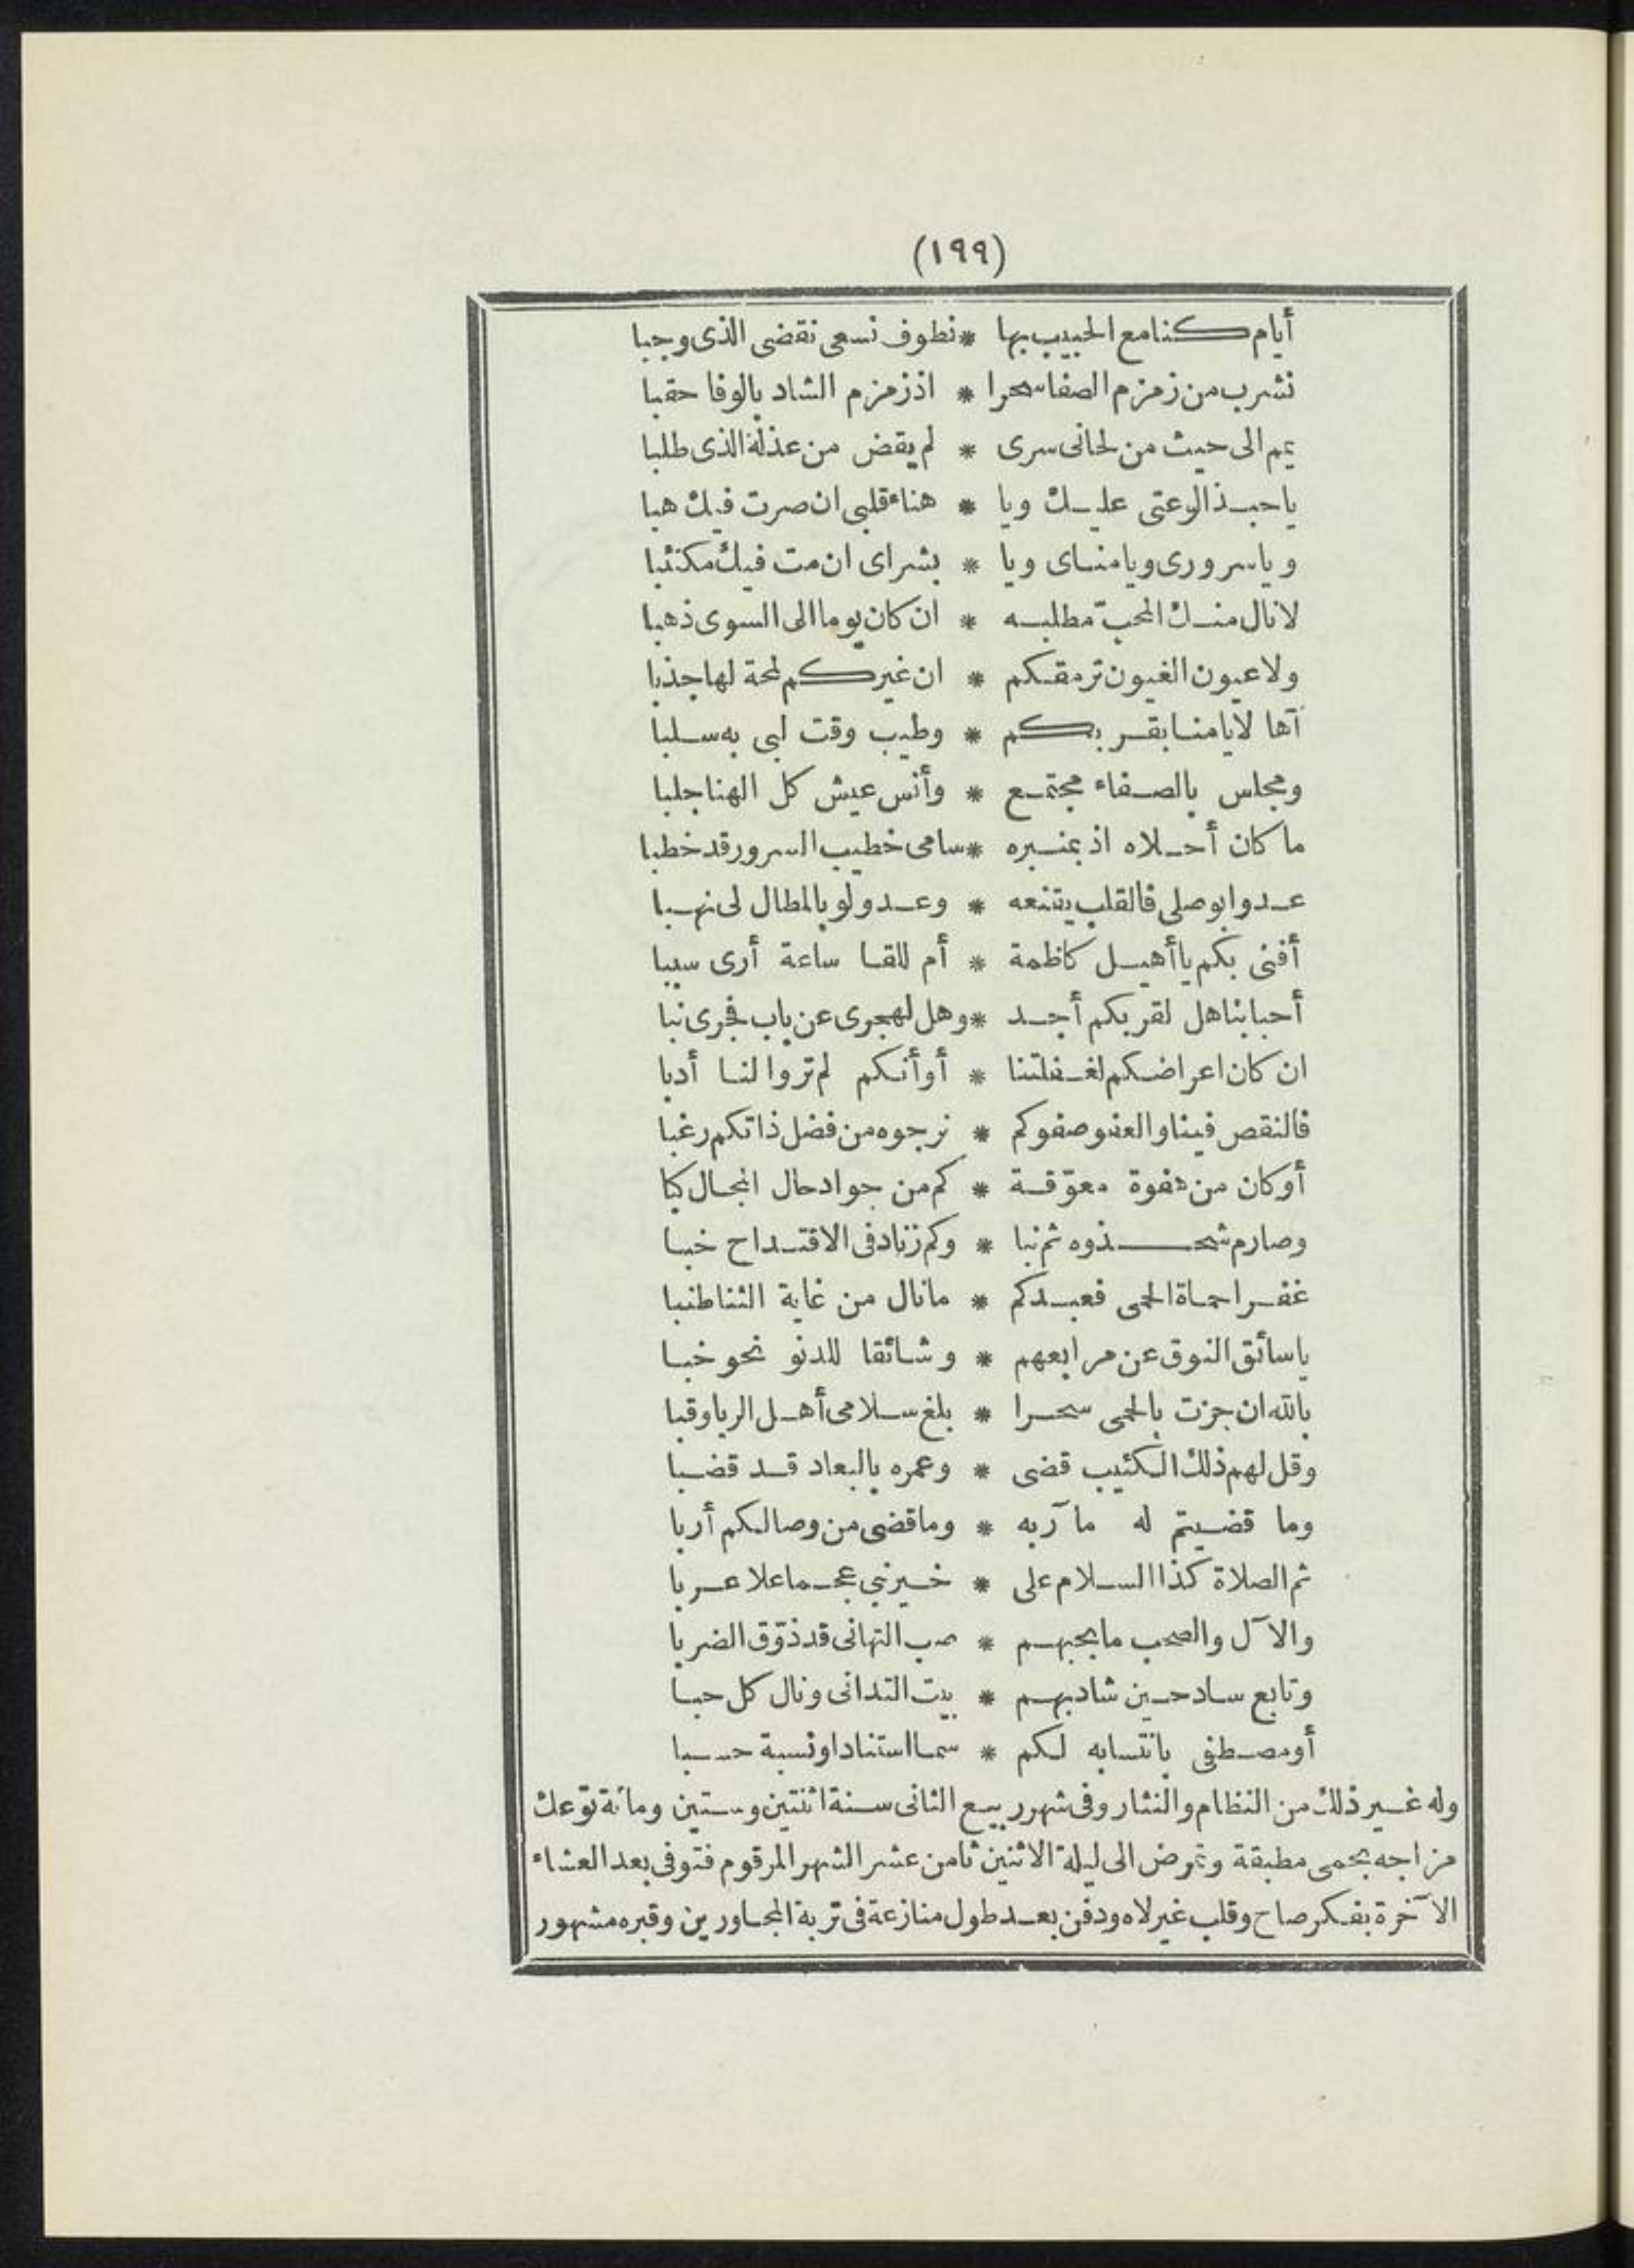 (١٩٩)
أيام كنا مع الحبيب بها * نطوف نسعى نقضى الذى وجبا
نشرب من زمزم الصفا سحرا * اذ زمزم الشاد بالوفا حقبا
يمم الى حيث من لحانى سرى * لم يقض من عذلة الذى طلبا
يا حبذا لوعتى عليك ويا * هناء قلبى ان صرت فيك هبا
ويا سرورى ويا مناى ويا * بشراى ان مت فيك مكتئبا
لا نال منك المحبّ مطلبه * ان كان يوما الى السوى ذهبا
ولا عيون الغيون ترمقكم * ان غيركم لمحة لها جذبا
آها لايامنا بقربكم * وطيب وقت لبى به سلبا
ومجلس بالصفاء مجتمع * وأنس عيش كل الهنا جلبا
ما كان أحلاه اذ بمنبره * سامى خطيب السرور قد خطبا
عدوا بوصلى فالقلب يقنعه * وعد ولو بالمطال لى نهبا
أفنى بكم يا أهيل كاظمة * أم للقا ساعة أرى سببا
أحبابنا هل لقربكم أجد * وهل لهجرى عن باب فجرى نبا
ان كان اعراضكم لغفلتنا * أو أنكم لم تروا لنا أدبا
فالنقص فينا والعفو صفوكم * نرجوه من فضل ذاتكم رغبا
أو كان من هفوة معوّقة * كم من جواد حال المجال كبا
وصارم شحذوه ثم نبا * وكم زناد فى الاقتداح خبا
غفرا حماة الحمى فعبدكم * ما نال من غاية الثنا طنبا
يا سائق النوق عن مرابعهم * وشائقا للدنو نحو خبا
بالله ان جزت بالحمى سحرا * بلغ سلامى أهل الربا وقبا
وقل لهم ذلك الكئيب قضى * وعمره بالبعاد قد قضبا
وما قضيتم له مآربه * وما قضى من وصالكم أربا
ثم الصلاة كذا السلام على * خير نبى عجما علا عربا
والآل والصحب ما بحبهم * صب التهانى قد ذوّق الضربا
وتابع ساد حين شاد بهم * بيت التدانى ونال كل حبا
أو مصطفى بانتسابه لكم * سما استنادا ونسبة حسبا
وله غير ذلك من النظام والنثار وفى شهر ربيع الثانى سنة اثنتين وستين ومائة توّعك
مزاجه بحمى مطبقة وتمرض الى ليلة الاثنين ثامن عشر الشهر المرقوم فتوفى بعد العشاء
الآخرة بفكر صاح وقلب غير لاه ودفن بعد طول منازعة فى تربة المجاورين وقبره مشهور